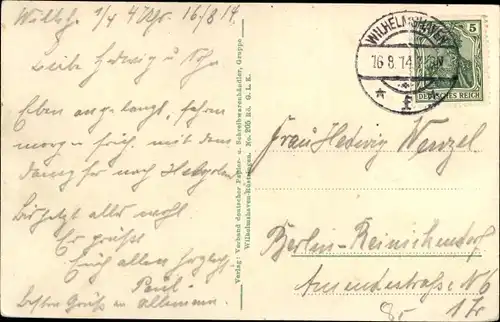 16/8 14.
Liebe Hedwig u
Eben angelangt, fahren
morgen früh mit dem
Dampfer nach Helgoland
Bis jetzt alles wohl
Es grüßt
Euch allen herzlich
Paul.
Besten Gruß an
Verlag: Verband deutscher Papier- u. Schreibwarenhändler, Gruppe
Wilhelmshaven-Rüstringen. No. 205 Rö. G. L. K.
WILHELMSHAVEN
16.8.14
5
DEUTSCHES REICH
Frau Hedwig Wenzel
Berlin-Reinickendorf
Amendestraße No 6
1 Tr